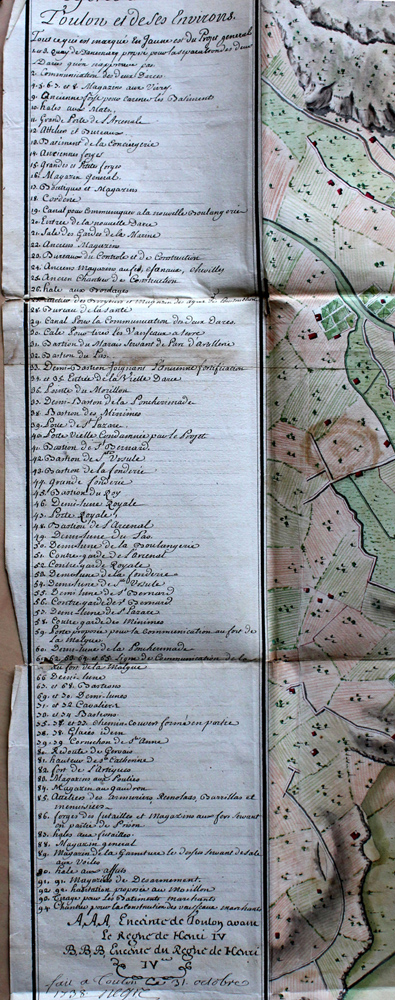 Toulon et de ses Environs.
Tout ce qui est marqué en Jaune est du Projet general
2. Communication des deux Darces
7. 8. 6. 5. et 8. Magazins aux Vivres
9. Ancienne fosse pour Carener les Batiments
10. hales aux Mats
11. Grande Porte de l'Arcenale
12. Atteliers et Bureaux
13. Batiment de la Conciergerie
14. Anciennes forges
15. Grandes et Petites forges
16. Magazin general
17. Boutiques et Magazins
18. Corderie
19. Canal pour Communiquer a la nouvelle Boulangerie
20. Entrée de la nouvelle Darce
21. Sale des Gardes de la Marine
22. Anciens Magazins
23. Bureaux du Controle et de Construction
24. Anciens Magazins au fer, fanaux, Chevilles
25. Ancien Chantier de Construction
26. hale aux Bordages
28. Bureaux de la santé
29. Canal Pour la Communication des deux Darces.
30. Cale Pour tirer les Vaisseaux a terre
31. Bastion du Marais servant de Parc d'artillerie
32. Bastion du Pas.
33. Demi-Bastion joignant l'ancienne fortification
34. et 35. Entrée de la Vielle Darce
36. Pointe du Morillon
37. Demi-Bastion de la Poncherimade
38. Bastion des Minimes
39. Porte de St Lazare
40. Porte Vielle Condamnée par le Projet
41. Bastion de St Bernard.
42. Bastion de Ste Ursule
43. Bastion de la fonderie
44. Grande fonderie
45. Bastion du Roy
46. Demi-lune Royale
47. Porte Royale
48. Bastion de l'Arcenal
49. Demi-lune du Pas.
50. Demi-lune de la Boulangerie
51. Contregarde de l'arcenal
52. Contregarde Royale
53. Demi-lune de la fonderie
54. Demi-lune de Ste Ursule
55. Demi-lune de St Bernard
56. Contregarde de St Bernard
57. Demi-lune de St Lazare
58. Contregarde des Minimes
59. Porte proposée pour la Communication au fort de
la Malgue
60. Demi-lune de la Poncherimade
61. 62. 63. 64. et 65. Ligne de Communication de la
au fort de la Malgue
66. Demi-lune
67. et 68. Bastions
69. et 70. Demi-lunes
71. et 72. Cavaliers
73. et 74. Bastions
75. 76. et 77. Chemin couvert formé en partie
78. 78. Glacis idem
79. Cornichon de Ste Anne
80. Redoute de Gervais
81. hauteur de Ste Catherine
82. fort de l'Artigues
83. Magazins aux Poulies
84. Magazin au gaudron
85. Atteliers des armuriers Remolats Barrillas et
menuisiers
86. forges des futailles et Magazins aux fers servant
en partie de Prison
87. hales aux futailles
88. Magazin general
89. Magazin de la Garniture le dessus servant de sale
aux Voiles
90. hale aux affuts
91. 91. Magazins de Desarmement
92. 92. habitation proposée au Morillon
93. Tirage pour les Batiments marchants
94. Chantier pour la Construction des vaisseaux marchants
A.A.A. Enceinte de Toulon avant
Le Regne de Henri IV
B.B.B. Enceinte du Regne de Henri
IV
fait a Toulon Ce 31 octobre
1738